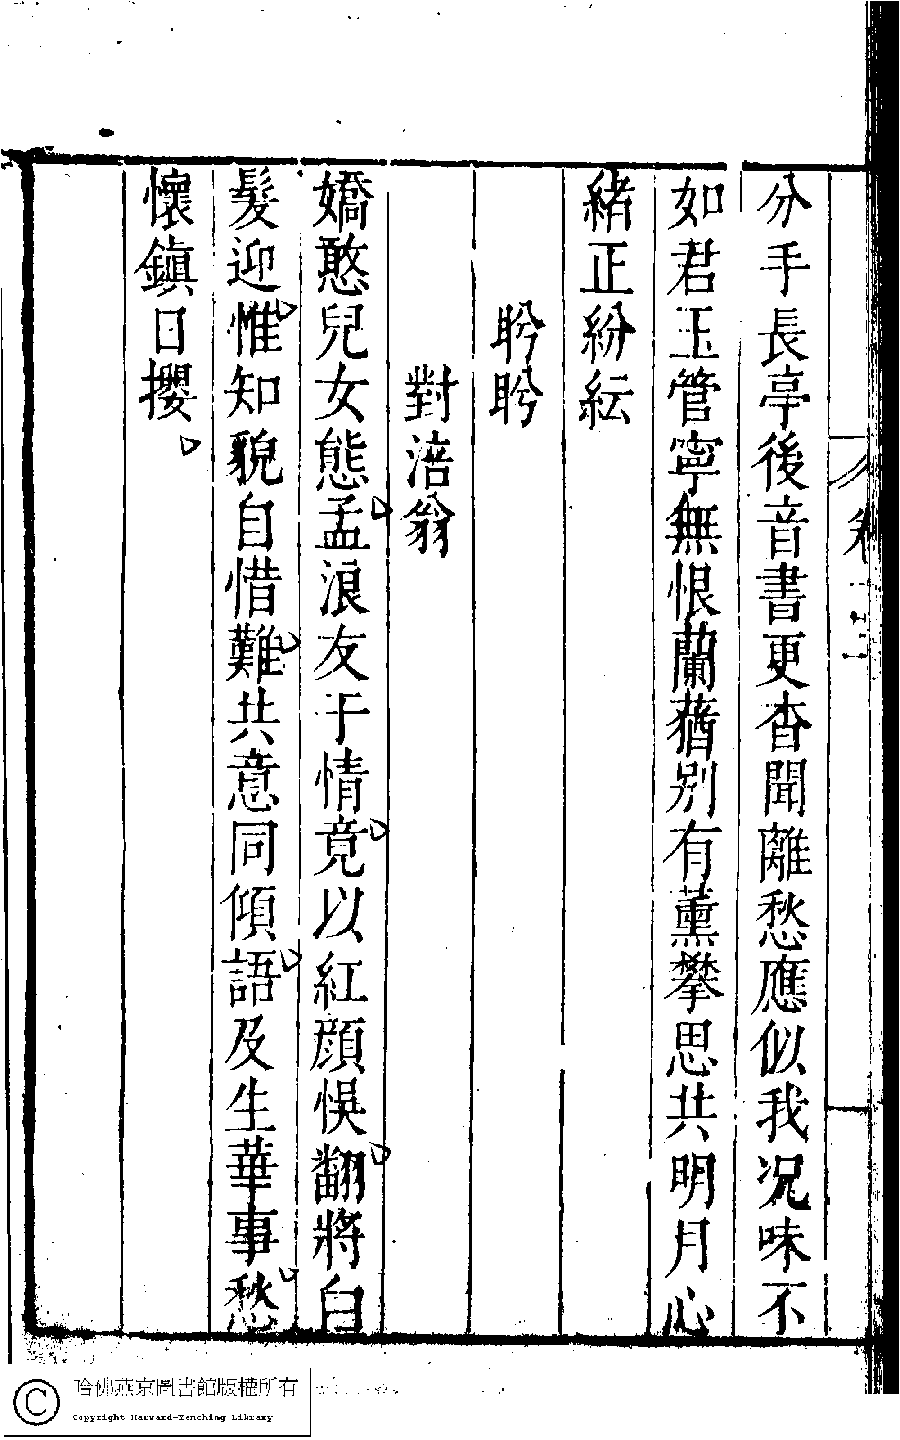 分手長亭後音書更杳聞離愁應似我况味不
如君玉管寧無恨蘭蕕别有薰攀思共明月心
緒正紛紜
盻盻
對涪翁
嬌憨兒女態孟浪友于情竟以紅顔悞翻將白
髮迎惟知貌自惜難共意同傾語及生華事愁
懷鎮日攖
哈佛燕京圖書館版權所有
Copyright Harvard-Yenching Library